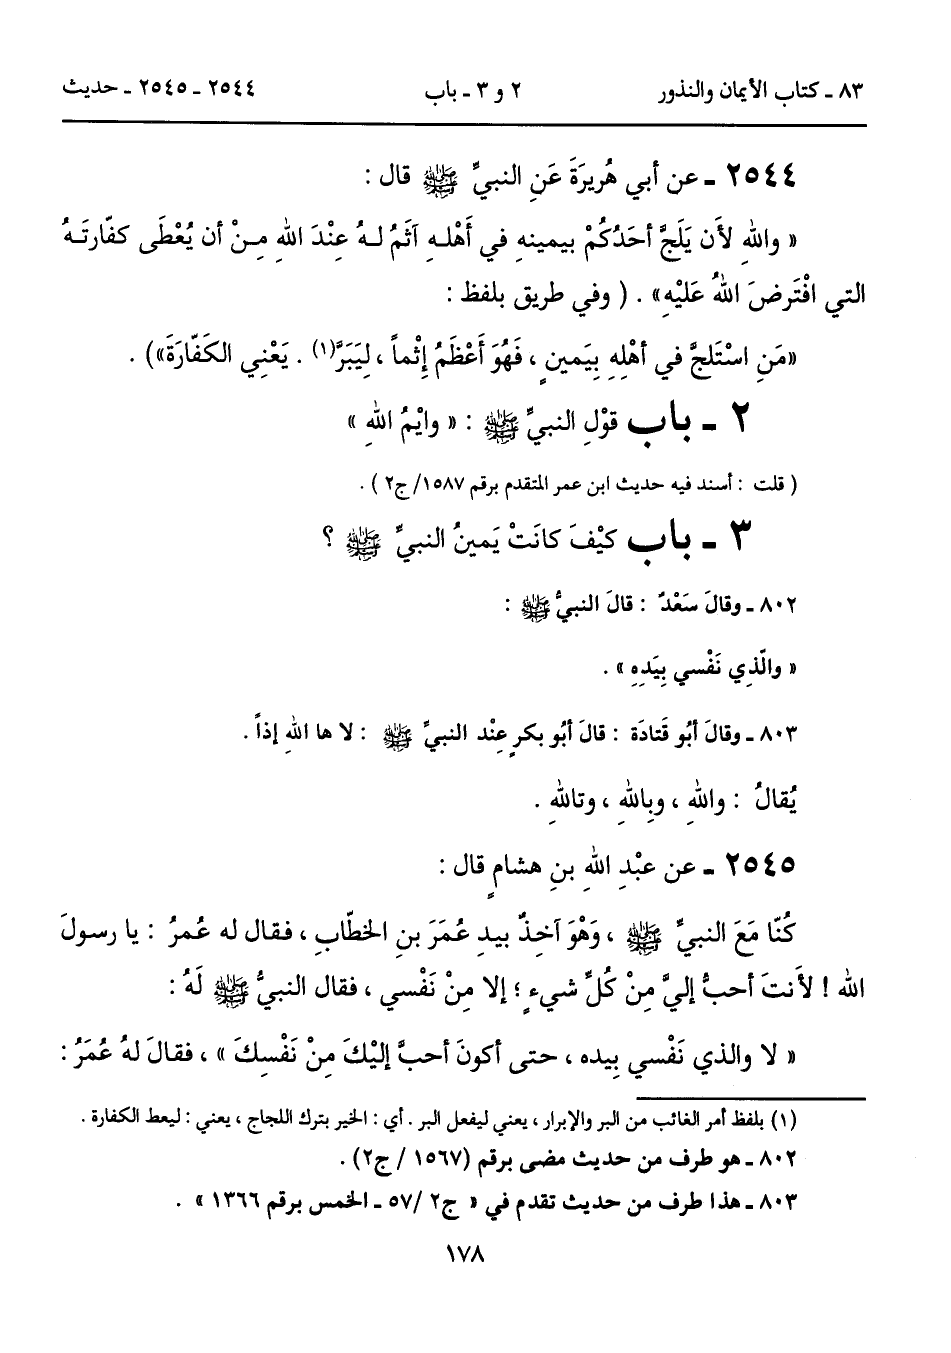 ٨٣ ـ كتاب الأيمان والنذور ٢ و ٣ ـ باب ٢٥٤٤ ـ ٢٥٤٥ ـ حديث
٢٥٤٤ ـ عن أبي هُريرَةَ عَنِ النبيِّ ﷺ قال :
« واللهِ لأَن يَلَجَّ أحَدُكُمْ بيمينهِ في أَهْلهِ آثَمُ لـهُ عِنْدَ اللهِ مِـنْ أن يُعْطَى كفّارتَـهُ
التي افْتَرضَ اللهُ عَلَيْهِ» . ( وفي طريق بلفظ :
«مَنِ اسْتَلجَّ في أهْلِهِ بِيَمينٍ ، فَهُوَ أَعْظَمُ إِثْماً ، لِيَبَرَّ(١) . يَعْنِي الكَفّارَةَ») .
٢ ـ باب قوْلِ النبيِّ ﷺ : « وايْمُ اللهِ »
( قلت : أسند فيه حديث ابن عمر المتقدم برقم ١٥٨٧/ ج٢ ) .
٣ ـ باب كيْفَ كانَتْ يَمينُ النبيِّ ﷺ ؟
٨٠٢ ـ وقالَ سَعْدٌ : قالَ النبيُّ ﷺ :
« والّذِي نَفْسي بِيَدِهِ » .
٨٠٣ ـ وقالَ أبُو قَتادَة : قالَ أبُو بكرٍ عِنْد النبيِّ ﷺ : لا ها اللهِ إذاً .
يُقالُ : واللهِ ، وبِاللهِ ، وتاللهِ .
٢٥٤٥ ـ عن عبْدِ اللهِ بنِ هشامٍ قال :
كُنّا مَعَ النبيِّ ﷺ ، وَهْوَ آخِذٌ بيدِ عُمَرَ بنِ الخطّابِ ، فقال له عمرُ : يا رسولَ
الله ! لأَنتَ أحبُّ إليَّ مِنْ كُلِّ شيءٍ ؛ إلا مِنْ نَفْسي ، فقال النبيُّ ﷺ لَهُ :
« لا والذي نَفْسي بيده ، حتى أكونَ أحبَّ إليْكَ مِنْ نَفْسِكَ » ، فقالَ لهُ عُمَرُ :
(١) بلفظ أمر الغائب من البر والإبرار ، يعني ليفعل البر . أي : الخير بترك اللجاج ، يعني : ليعط الكفارة .
٨٠٢ ـ هو طرف من حديث مضى برقم (١٥٦٧ / ج٢) .
٨٠٣ ـ هذا طرف من حديث تقدم في « ج٢ /٥٧ ـ الخمس برقم ١٣٦٦ » .
١٧٨